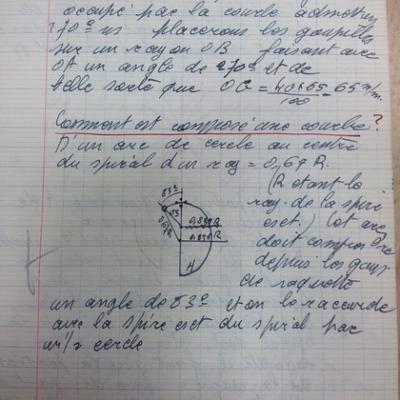 occupé par la courbe admettons
270º us placerons les goupilles
sur un rayon OB faisant avec
OA un angle de 270º et de
telle sorte que OG = 40+65/100 = 65 m/m.
Comment est composé une courbe?
D'un arc de cercle au centre
du spiral d'un ray = 0,67 R.
(R etant le
ray. de la spire
83º
83
0,67R
0,83R
ext.) Cet arc
doit comprendre
depuis les goup
de raquette
un angle de 83º et on le raccorde
avec la spire ext du spiral par
un 1/2 cercle